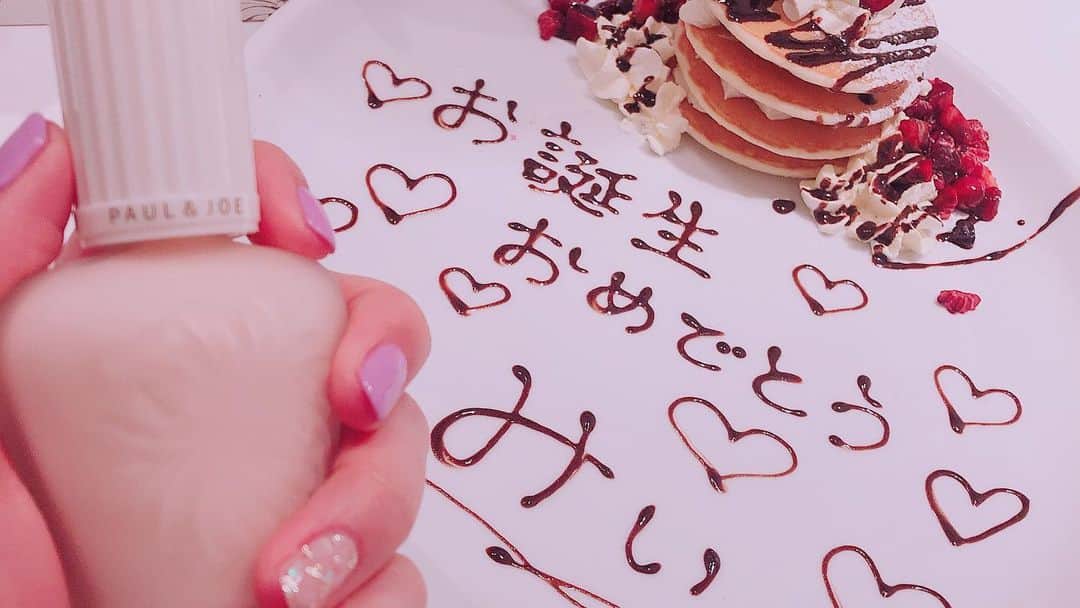 PAUL & JOE
お誕生
おめでとう
みい